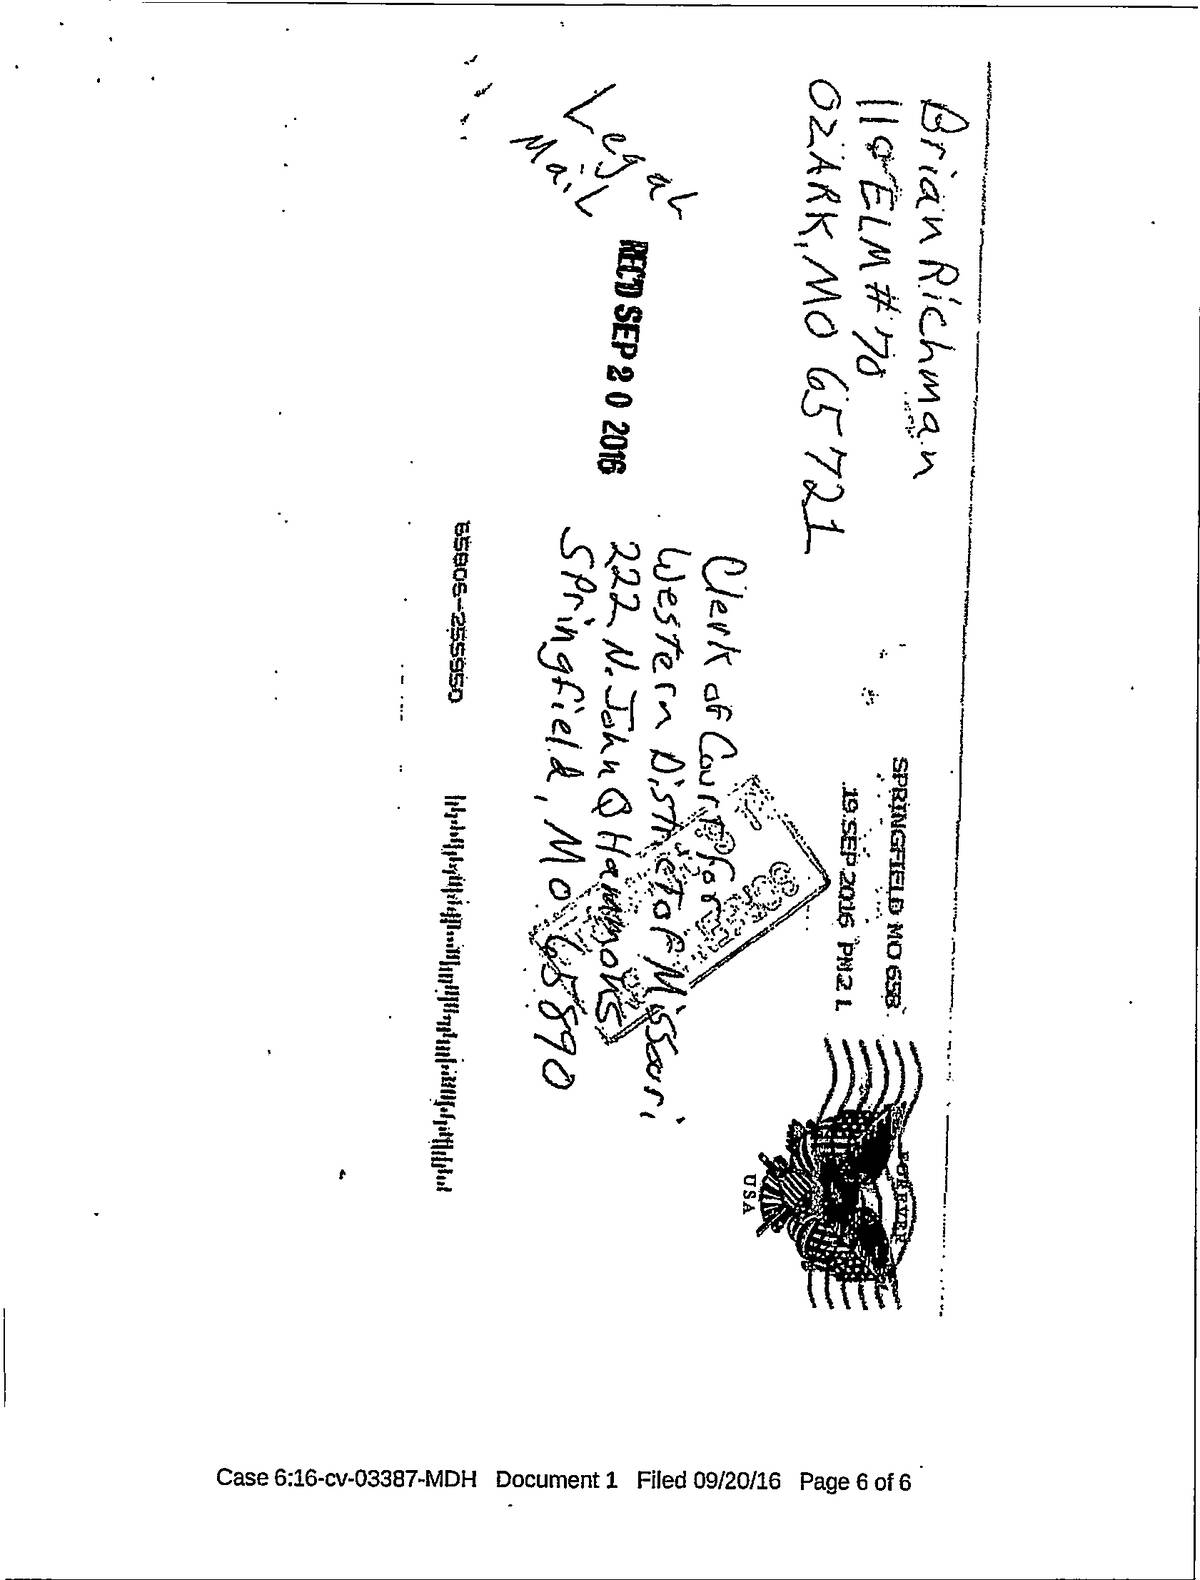 Brian Richman
110 ELM #70
OZARK, MO 65721
SPRINGFIELD MO 658
19 SEP 2016 PM 2 L
FOREVER
USA
Legal
Mail
REC'D SEP 20 2016
Clerk of Court for
Western District of Missouri
222 N. John Q Hammons
Springfield, Mo 65890
65806-255950
Case 6:16-cv-03387-MDH Document 1 Filed 09/20/16 Page 6 of 6